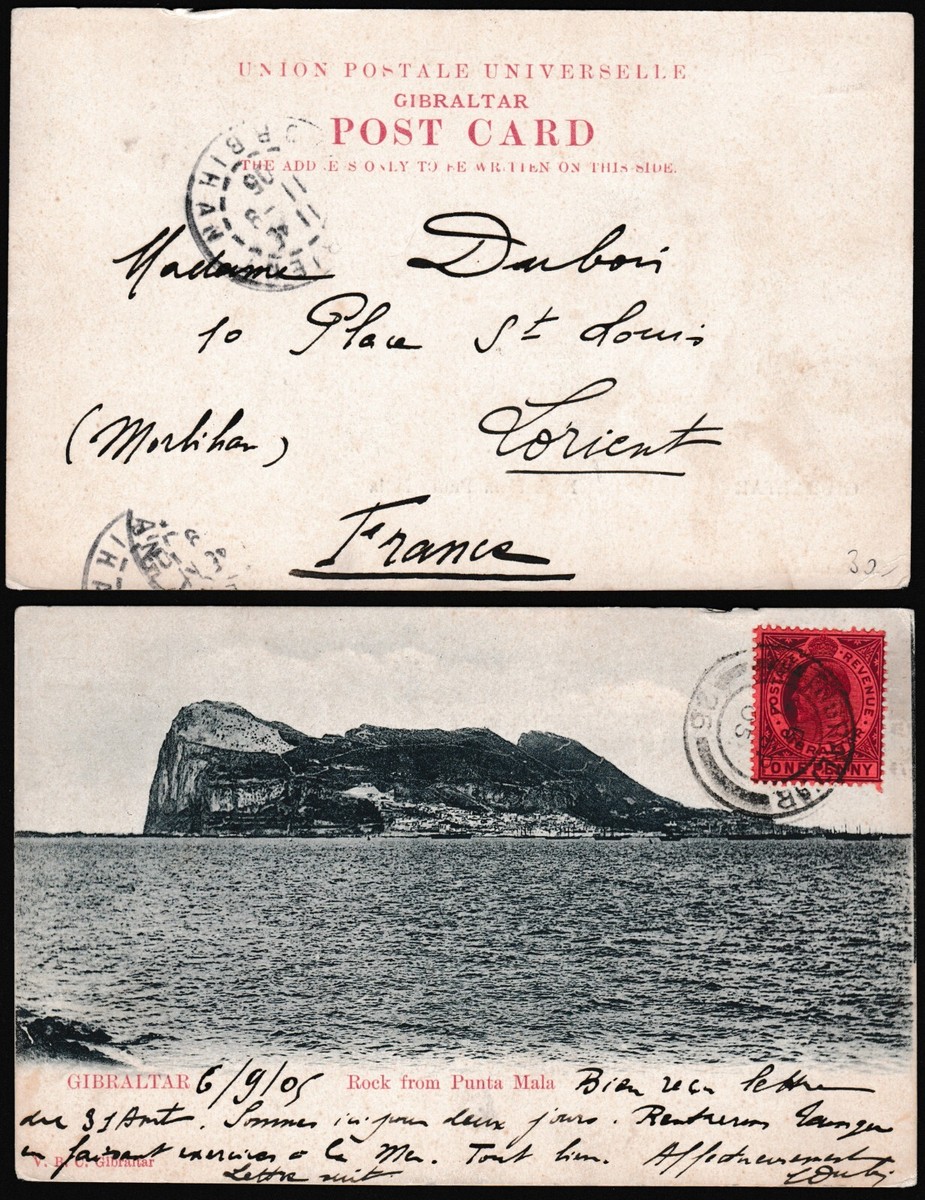 UNION POSTALE UNIVERSELLE
GIBRALTAR
POST CARD
THE ADD E S ONLY TO BE WRITTEN ON THIS SIDE.
MORBIHAN
11 11
Madame Dubois
10 Place St Louis
(Morbihan) Lorient
France
30
POSTAGE REVENUE
GIBRALTAR
ONE PENNY
GIBRALTAR
A26
05
GIBRALTAR 6/9/05 Rock from Punta Mala Bien reçu lettre
du 31 Août. Sommes ici pour deux jours. Rentrerons Tanger
en faisant exercices à la Mer. Tout bien. Affectueusement
V. B. C. Gibraltar Lettre suit LDubois